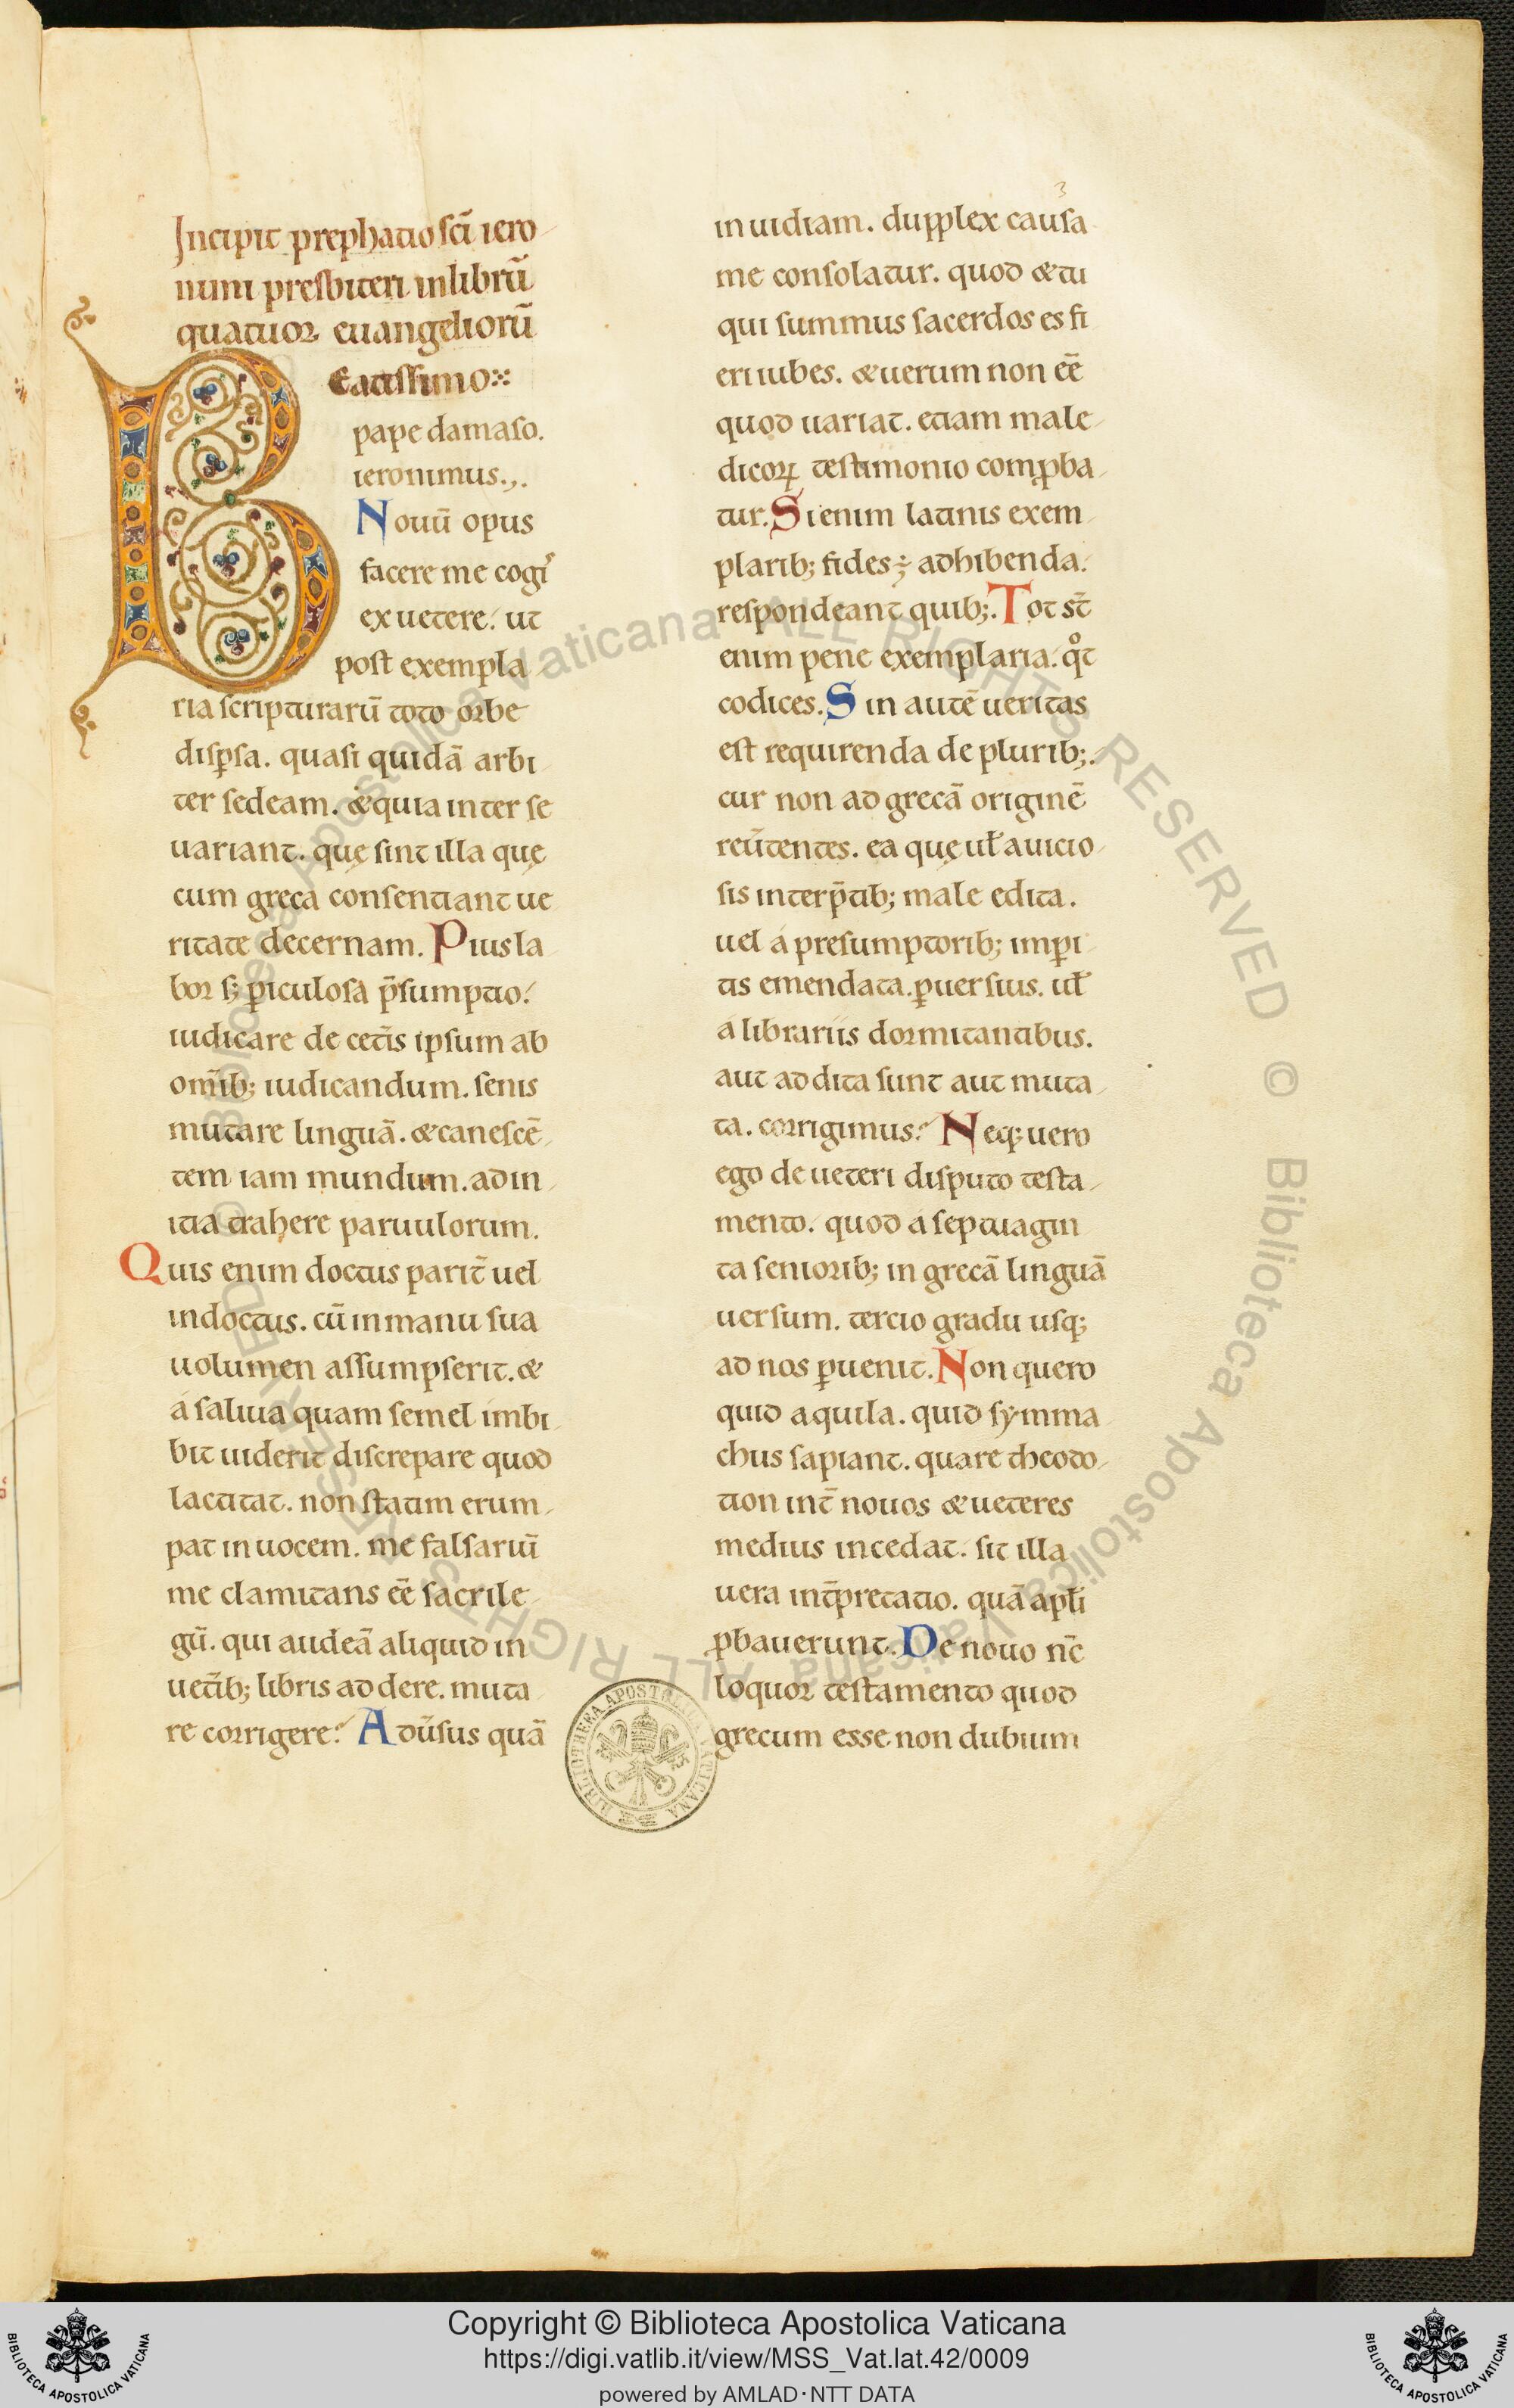 3
Incipit prephatio sc̄i iero
nimi presbiteri in librū
quatuor euangeliorū
Beatissimo
pape damaso.
ieronimus.,.
Nouū opus
facere me cogi᷑
ex uetere. ut
post exempla
ria scripturarū toto orbe
disp̄sa. quasi quidā arbi
ter sedeam. & quia inter se
uariant. quę sint illa quę
cum greca consentiant ue
ritate decernam. Pius la
bor s; ꝑiculosa p̄sumptio.
iudicare de cet̄is ipsum ab
om̄ib; iudicandum. senis
mutare linguā. & canescē
tem iam mundum. ad in
itia trahere paruulorum.
Quis enim doctus parit̄ uel
indoctus. cū in manu sua
uolumen assumpserit. &
a saliua quam semel imbi
bit uiderit discrepare quod
lactitat. non statim erum
pat in uocem. me falsariū
me clamitans eē sacrile
gū. qui audeā aliquid in
uet̄ib; libris addere. muta
re corrigere? Adūsus quā
inuidiam. dupplex causa
me consolatur. quod & tu
qui summus sacerdos es fi
eri iubes. & uerum non eē
quod uariat. etiam male
dicoꝝ testimonio comꝓba
tur. Si enim latinis exem
plarib; fides ÷ adhibenda.
respondeant quib;. Tot st̄
enim pene exemplaria. qͦt
codices. Sin autē ueritas
est requirenda de plurib;.
cur non ad grecā originē
reūtentes. ea quę ul̄ a uicio
sis interp̄tib; male edita.
uel a presumptorib; imꝑi
tis emendata. ꝑuersius. ul̄
a librariis dormitantibus.
aut addita sunt aut muta
ta. corrigimus? Neq; uero
ego de ueteri disputo testa
mento. quod a septuagin
ta seniorib; in grecā linguā
uersum. tercio gradu usq;
ad nos ꝑuenit. Non quero
quid aquila. quid symma
chus sapiant. quare theodo
tion int̄ nouos & ueteres
medius incedat. sit illa
uera int̄pretatio. quā apl̄i
ꝓbauerunt. De nouo nc̄
loquor testamento quod
grecum esse non dubium
BIBLIOTHECA APOSTOLICA VATICANA
© Biblioteca Apostolica Vaticana ALL RIGHTS RESERVED © Biblioteca Apostolica Vaticana ALL RIGHTS RESERVED
Copyright © Biblioteca Apostolica Vaticana
https://digi.vatlib.it/view/MSS_Vat.lat.42/0009
powered by AMLAD·NTT DATA
BIBLIOTECA APOSTOLICA VATICANA
BIBLIOTECA APOSTOLICA VATICANA